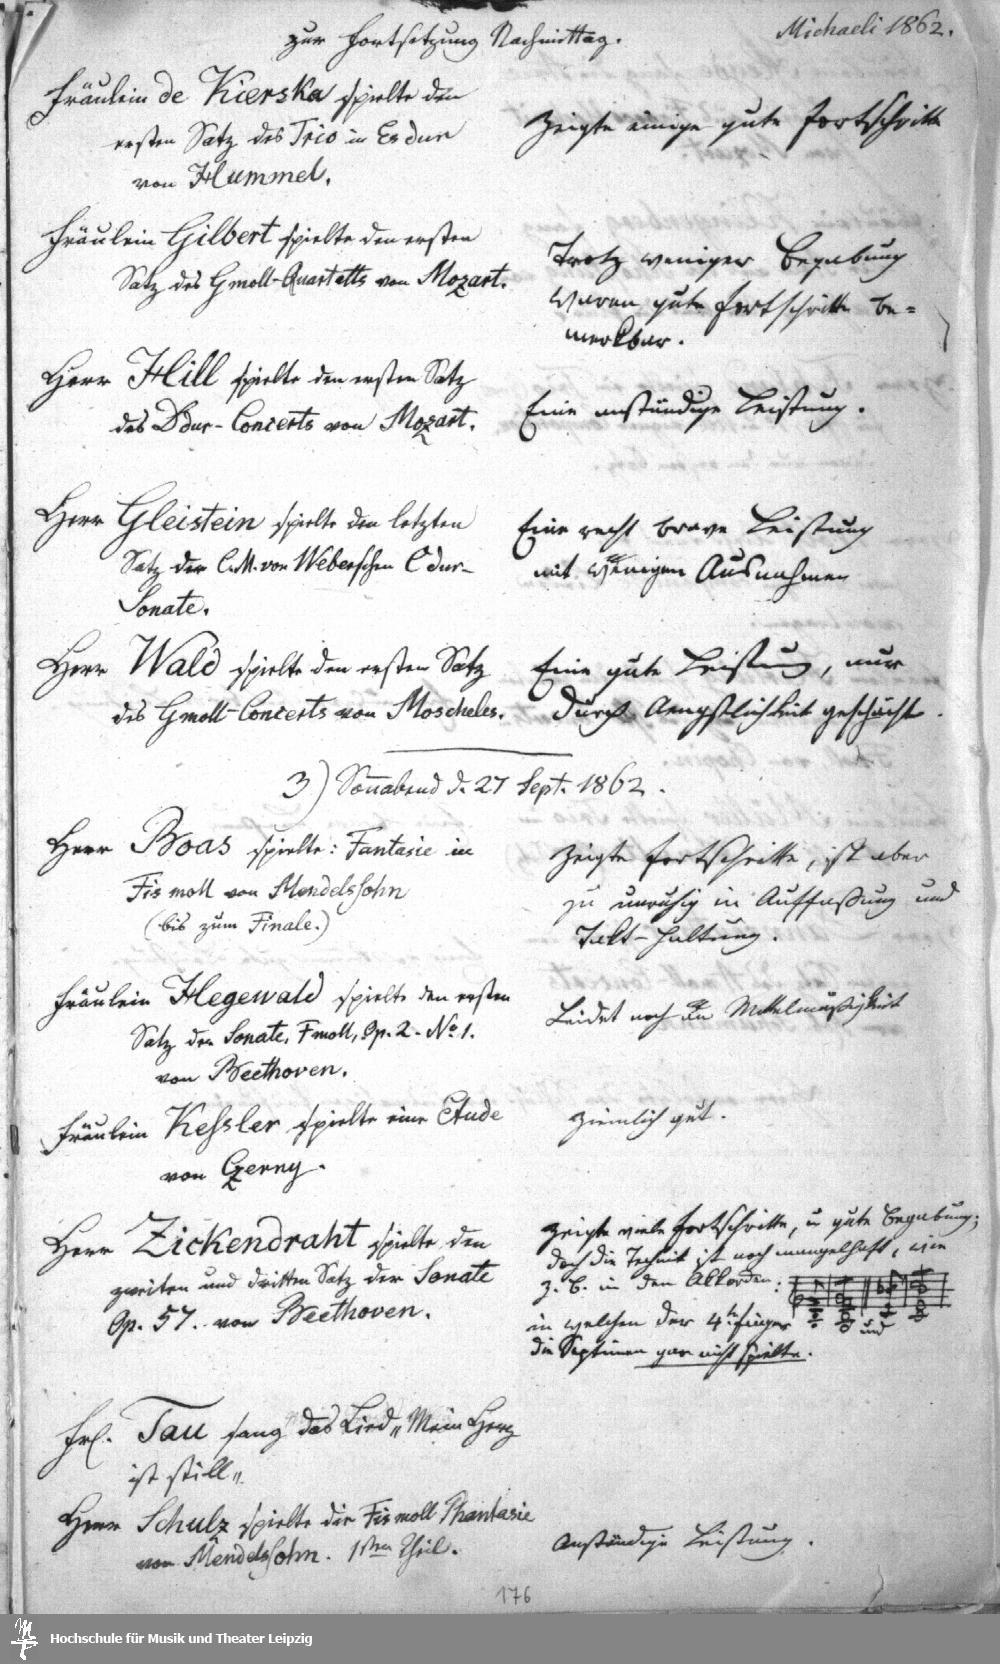 Michaeli 1862.
zur Fortsetzung Nachmittag.
Fräulein de Kierska spielte den
ersten Satz des Trio in Es dur
von Hummel.
Zeigte einige gute Fortschritte
Fräulein Gilbert spielte den ersten
Satz des Gmoll-Quartetts von Mozart.
Trotz weniger Begabung
waren gute Fortschritte be=
merkbar.
Herr Hill spielte den ersten Satz
des Ddur-Concerts von Mozart.
Eine anständige Leistung.
Herr Gleistein spielte den letzten
Satz der C.M. von Weberschen Cdur-
Sonate.
Eine recht brave Leistung
mit wenigen Ausnahmen
Herr Wald spielte den ersten Satz
des Gmoll-Concerts von Moscheles.
Eine gute Leistung, nur
durch Aengstlichkeit geschächt.
3) Sonnabend d. 27 Sept. 1862.
Herr Boas spielte: Fantasie in
Fis moll von Mendelssohn
(bis zum Finale.)
Zeigte Fortschritte, ist aber
zu unruhig in Auffassung und
Takt-Haltung.
Fräulein Hegewald spielte den ersten
Satz der Sonate, Fmoll, Op. 2. No 1.
von Beethoven.
Leidet noch an Mittelmäßigkeit
Fräulein Kessler spielte eine Etude
von Czerny.
ziemlich gut.
Herr Zickendraht spielte den
zweiten und dritten Satz der Sonate
Op. 57. von Beethoven.
Zeigte viele Fortschritte, u gute Begabung;
doch die Technik ist noch mangelhaft, wie
z. B. in den Akkorden:
und
in welchen der 4te Finger
die Septimen gar nicht spielte.
Frl. Tau sang das Lied „Mein Herz
ist still„
Herr Schulz spielte die Fis moll Phantasie
von Mendelssohn. 1sten Theil.
Anständige Leistung.
176
Hochschule für Musik und Theater Leipzig